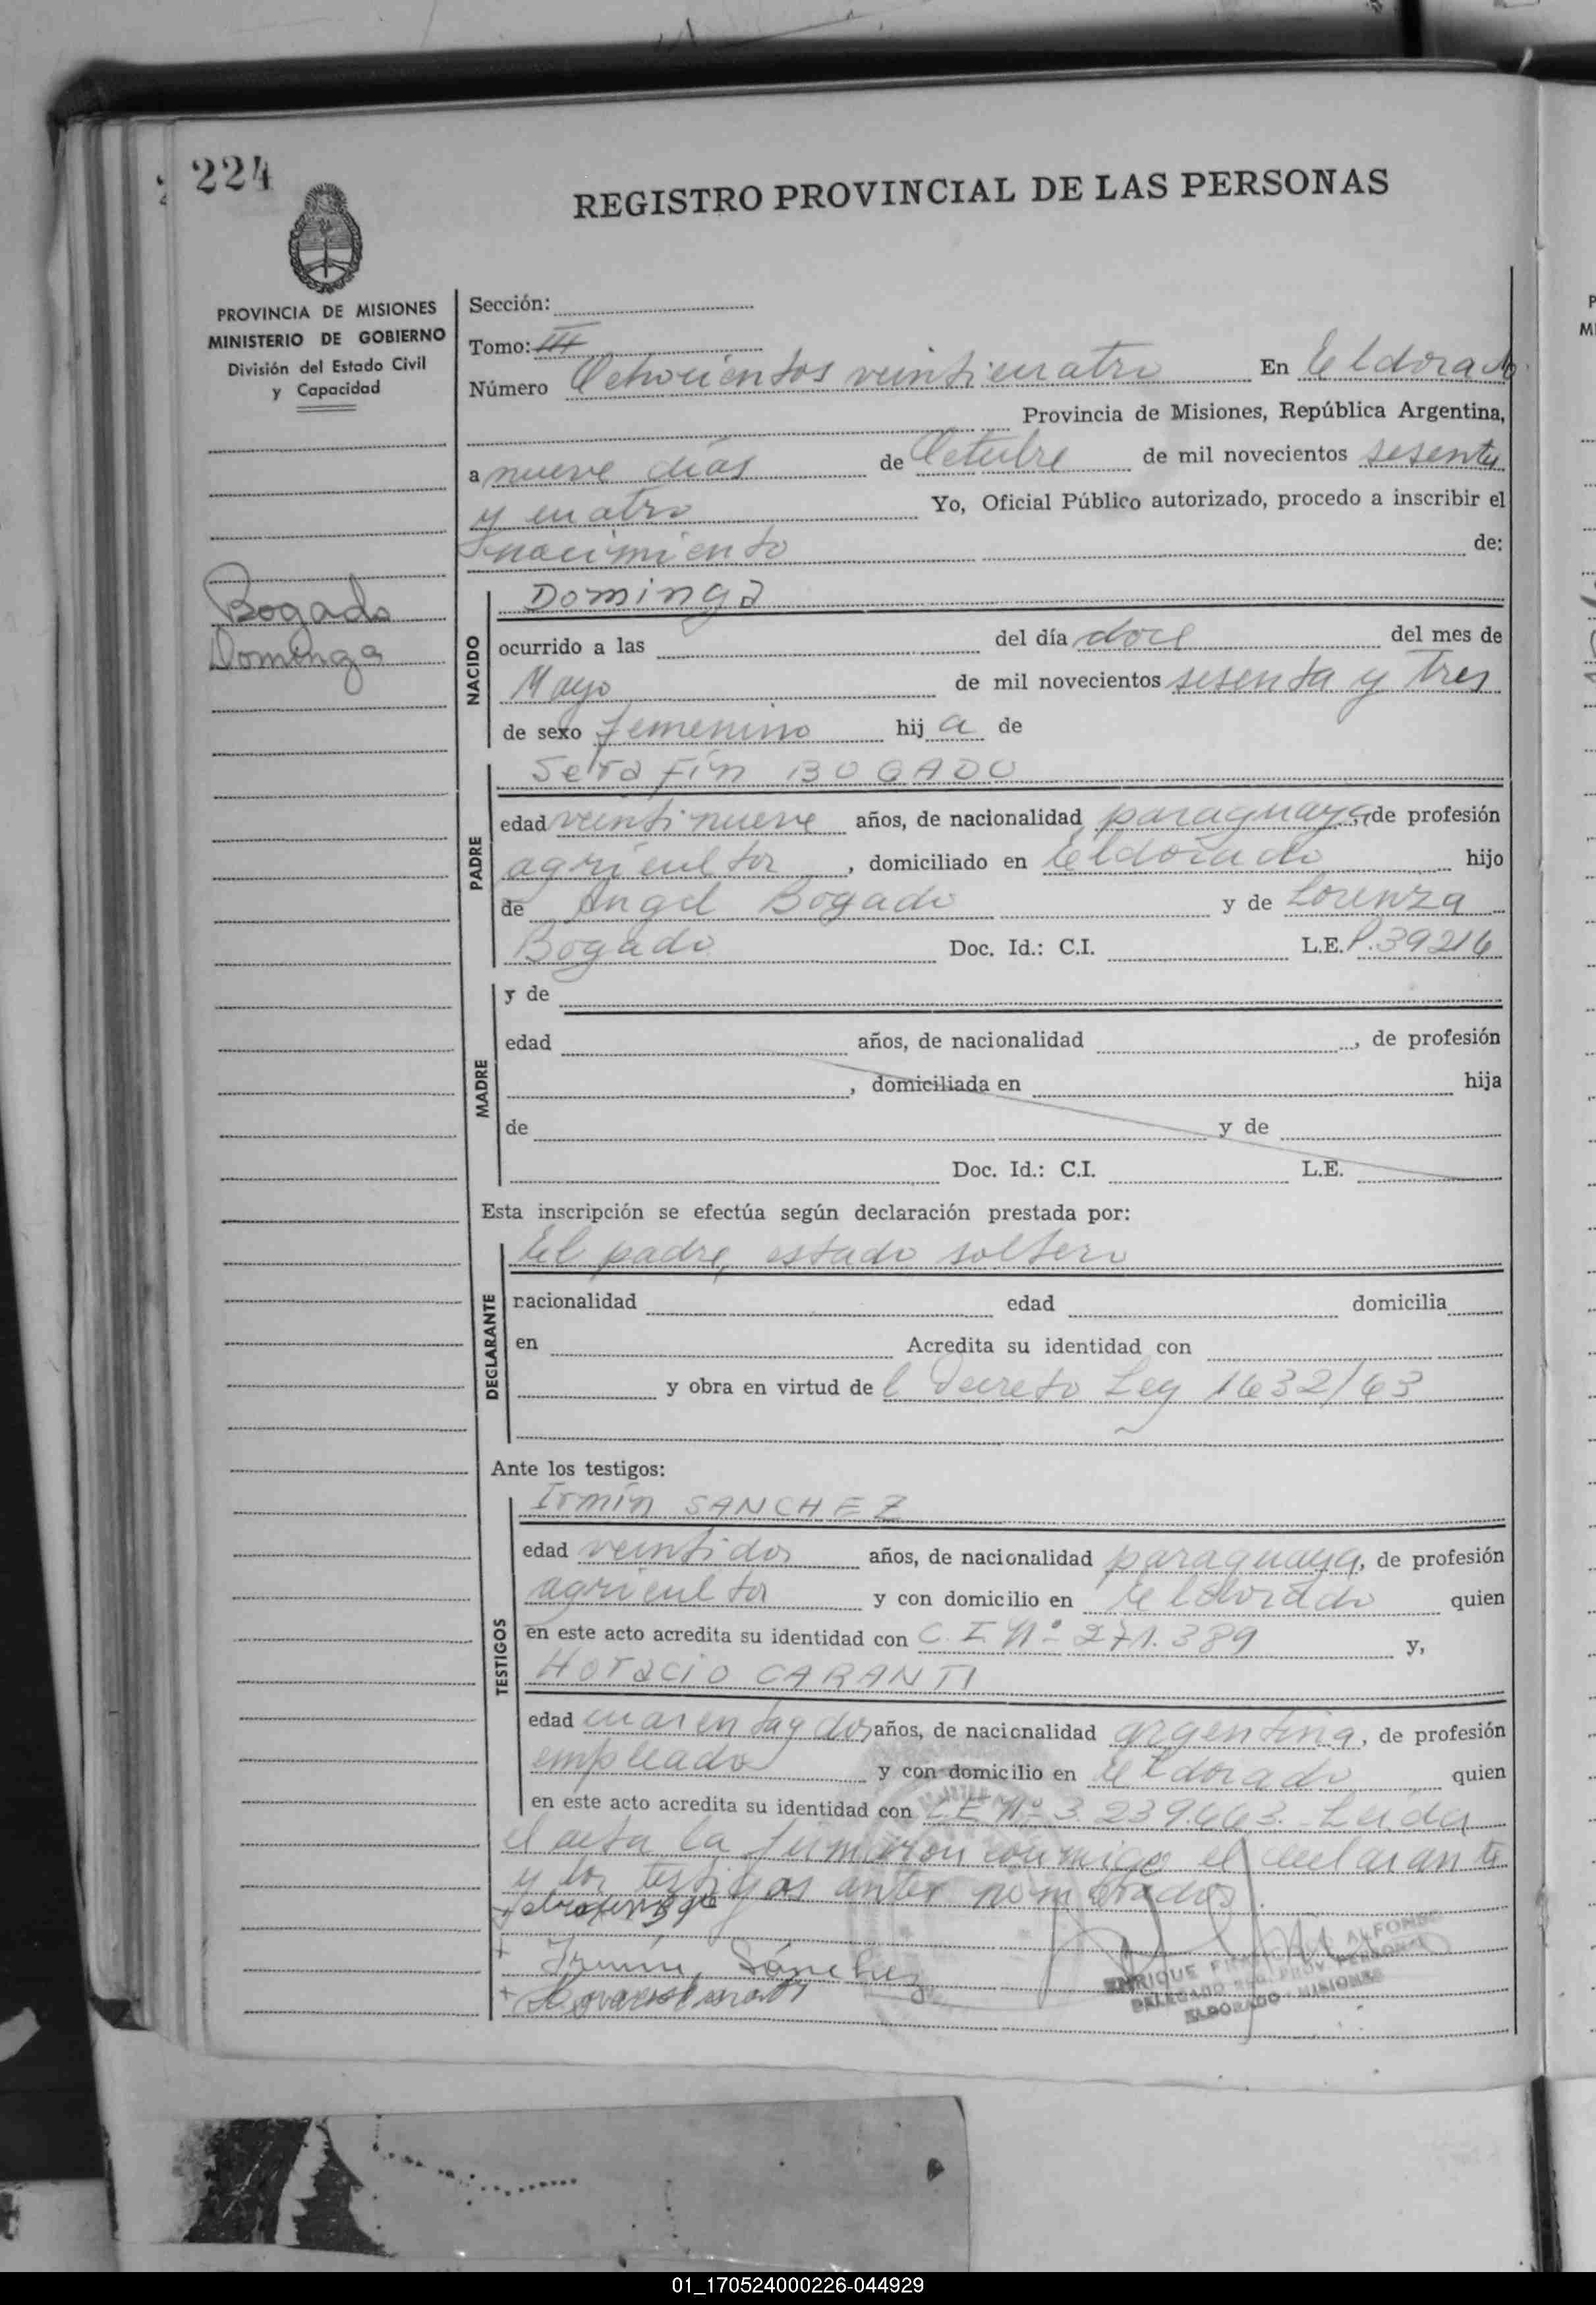 224
REGISTRO PROVINCIAL DE LAS PERSONAS
PROVINCIA DE MISIONES
MINISTERIO DE GOBIERNO
División del Estado Civil
y Capacidad
Bogado
Dominga
Sección:
Tomo: III
Número Ochocientos veinticuatro En Eldorado
Provincia de Misiones, República Argentina,
a nueve días de Octubre de mil novecientos sesenta
y cuatro Yo, Oficial Público autorizado, procedo a inscribir el
nacimiento de:
NACIDO
Dominga
ocurrido a las del día doce del mes de
Mayo de mil novecientos sesenta y tres
de sexo femenino hij a de
PADRE
Serafín BOGADO
edad veintinueve años, de nacionalidad paraguaya, de profesión
agricultor, domiciliado en Eldorado hijo
de Angel Bogado y de Lorenza
Bogado Doc. Id.: C.I. L.E. P.39216
MADRE
y de
edad años, de nacionalidad , de profesión
, domiciliada en hija
de y de
Doc. Id.: C.I. L.E.
Esta inscripción se efectúa según declaración prestada por:
DECLARANTE
El padre, estado soltero
nacionalidad edad domicilia
en Acredita su identidad con
y obra en virtud de l Decreto Ley 1632/63
Ante los testigos:
TESTIGOS
Irmín SANCHEZ
edad veintidos años, de nacionalidad paraguaya, de profesión
agricultor y con domicilio en Eldorado quien
en este acto acredita su identidad con C.I. Nº 271.389 y,
Horacio CARANTI
edad cuarenta y dos años, de nacionalidad argentina, de profesión
empleado y con domicilio en Eldorado quien
en este acto acredita su identidad con L.E Nº 3.239.663. Leída
el acta la firmaron conmigo el declarante
y los testigos antes nombrados.
Irmín Sánchez
ENRIQUE ALFONSO
DELEGADO REG. PROV. PERSONAS
ELDORADO - MISIONES
01_170524000226-044929